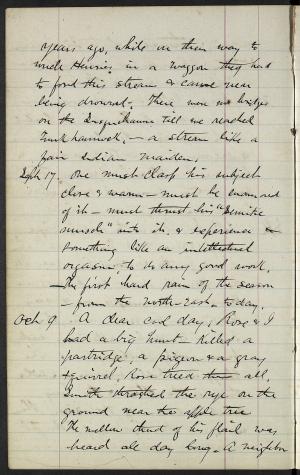 years ago, while on their way to
uncle Henries in a waggon they had
to ford this stream & came near
being drowned. There were no bridges
on the Susquehanna till we reached
Tunkhannock, — a stream like a
fair Indian maiden.
Sept 17. One must clasp his subject
close & warm — must be enamored
of it — must thrust his
muscle" into it, & experience
something like an intellectual
orgasm, to do any good work.
— The first hard rain of the season
— from the north-east, to-day.
Oct 9 A clear cool day, Rose & I
had a big hunt — killed a
partridge, a pigeon & a gray
squirrel. Rose treed them all.
Smith thrashed the rye on the
ground near the apple tree
The mellow thud of his flail was
heard all day long. A neighbor